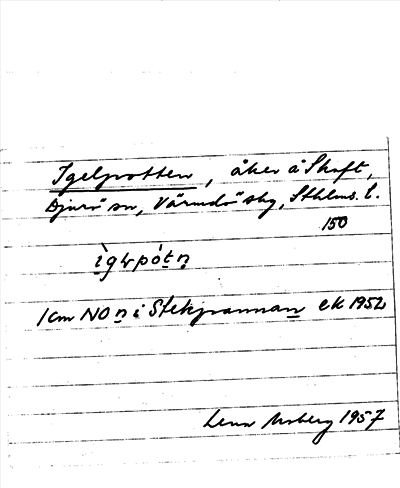 Igelpotten, åker å Skaft,
Djurö sn, Värmdö skg, Sthlms. l.
150
ìgəpót n̥
1 km NO n i Stekpannan ek 1952
Lena Moberg 1957